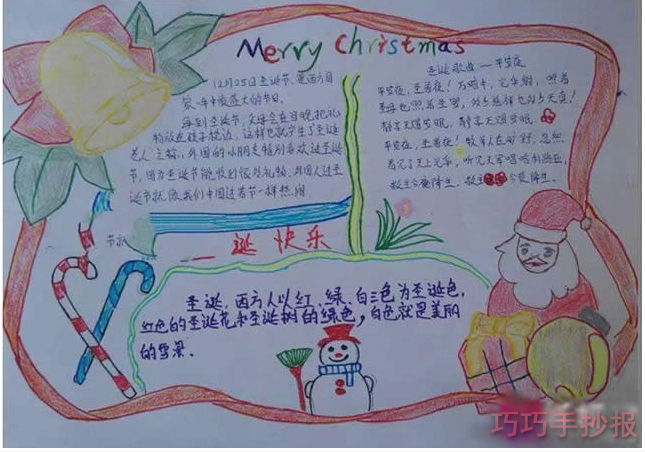 Merry Christmas
12月05日圣诞节,是西方国
家一年中最盛大的节日。
每到圣诞节,父母会在当晚把礼
物放在孩子枕边,这样也就产生了圣诞
老人之称,外国的小朋友特别喜欢过圣诞
节,因为圣诞节能收到很多礼物,外国人过圣
诞节就像我们中国过春节一样热闹
圣诞歌曲——平安夜
平安夜,圣善夜!万暗中,光华射,照着
圣母也照着圣婴,多少慈祥也多少天真!
静享天赐安眠,静享天赐安眠。
平安夜,圣善夜!牧羊人在旷野,忽然
看见了天上光华,听见天军唱哈利路亚,
救主今夜降生,救主今夜降生.
诞快乐
圣诞,西方人以红、绿、白三色为圣诞色,
红色的圣诞花和圣诞树的绿色,白色就是美丽
的雪景.
巧巧手抄报